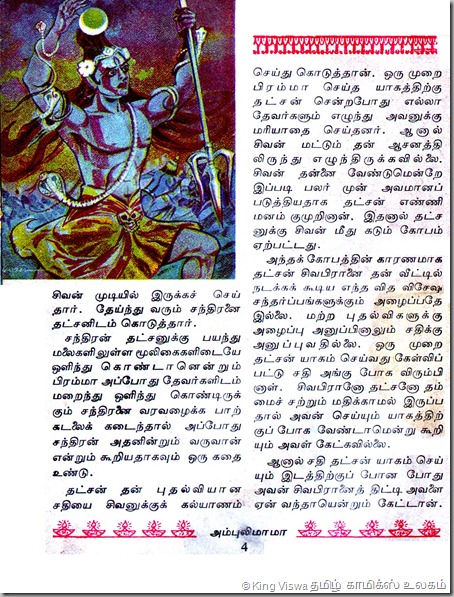 சிவன் முடியில் இருக்கச் செய்
தார். தேய்ந்து வரும் சந்திரனை
தட்சனிடம் கொடுத்தார்.
சந்திரன் தட்சனுக்கு பயந்து
மலைகளிலுள்ள மூலிகைகளிடையே
ஒளிந்து கொண்டானென்றும்
பிரம்மா அப்போது தேவர்களிடம்
மறைந்து ஒளிந்து கொண்டிருக்
கும் சந்திரனை வரவழைக்க பாற்
கடலைக் கடைந்தால் அப்போது
சந்திரன் அதனின்றும் வருவான்
என்றும் கூறியதாகவும் ஒரு கதை
உண்டு.
தட்சன் தன் புதல்வியான
சதியை சிவனுக்குக் கல்யாணம்
செய்து கொடுத்தான். ஒரு முறை
பிரம்மா செய்த யாகத்திற்கு
தட்சன் சென்றபோது எல்லா
தேவர்களும் எழுந்து அவனுக்கு
மரியாதை செய்தனர். ஆனால்
சிவன் மட்டும் தன் ஆசனத்தி
லிருந்து எழுந்திருக்கவில்லை.
சிவன் தன்னை வேண்டுமென்றே
இப்படி பலர் முன் அவமானப்
படுத்தியதாக தட்சன் எண்ணி
மனம் குமுறினான். இதனால் தட்ச
னுக்கு சிவன் மீது கடும் கோபம்
ஏற்பட்டது.
அந்தக் கோபத்தின் காரணமாக
தட்சன் சிவபிரானை தன் வீட்டில்
நடக்கக் கூடிய எந்த வித விசேஷ
சந்தர்ப்பங்களுக்கும் அழைப்பதே
இல்லை. மற்ற புதல்விகளுக்கு
அழைப்பு அனுப்பினாலும் சதிக்கு
அனுப்புவதில்லை. ஒரு முறை
தட்சன் யாகம் செய்வது கேள்விப்
பட்டு சதி அங்கு போக விரும்பி
னாள். சிவபிரானோ தட்சனோ தம்
மைச் சற்றும் மதிக்காமல் இருப்ப
தால் அவன் செய்யும் யாகத்திற்
குப் போக வேண்டாமென்று கூறி
யும் அவள் கேட்கவில்லை.
ஆனால் சதி தட்சன் யாகம் செய்
யும் இடத்திற்குப் போன போது
அவன் சிவபிரானைத் திட்டி அவளை
ஏன் வந்தாயென்றும் கேட்டான்.
அம்புலிமாமா
4
© King Viswa தமிழ் காமிக்ஸ் உலகம்